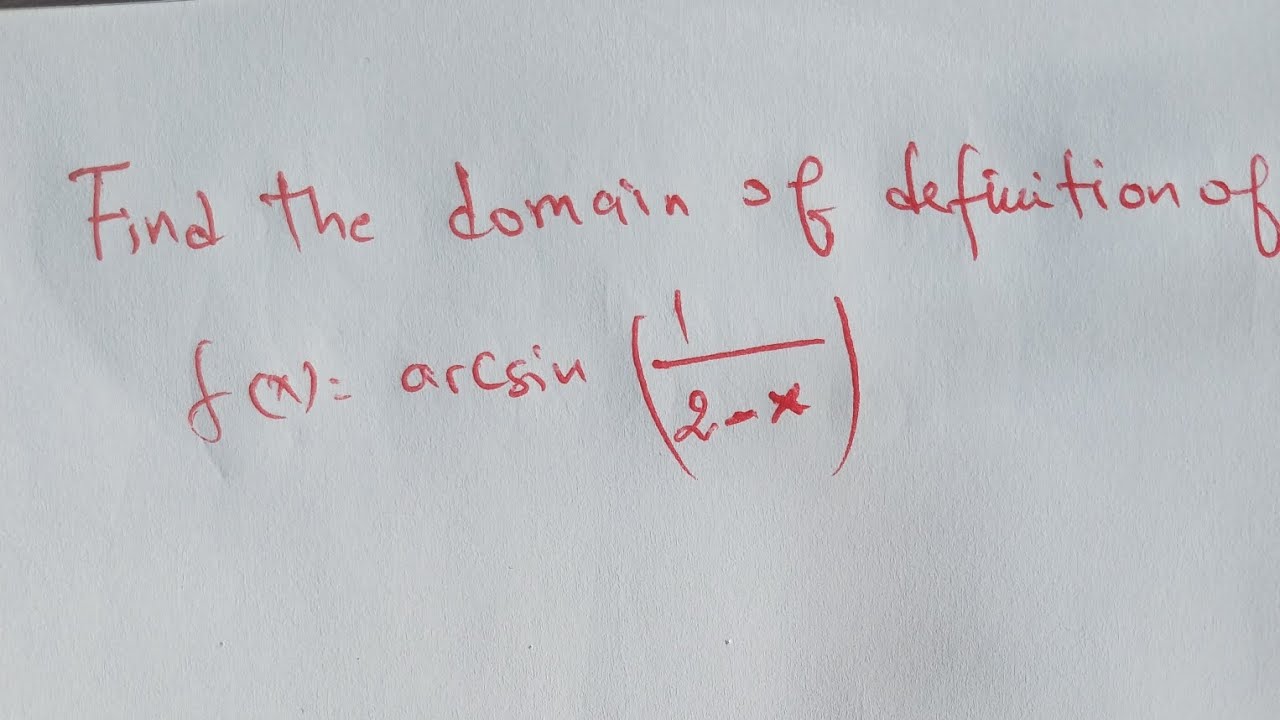 Find the domain of definition of
f(x) = arcsin (1/(2-x))